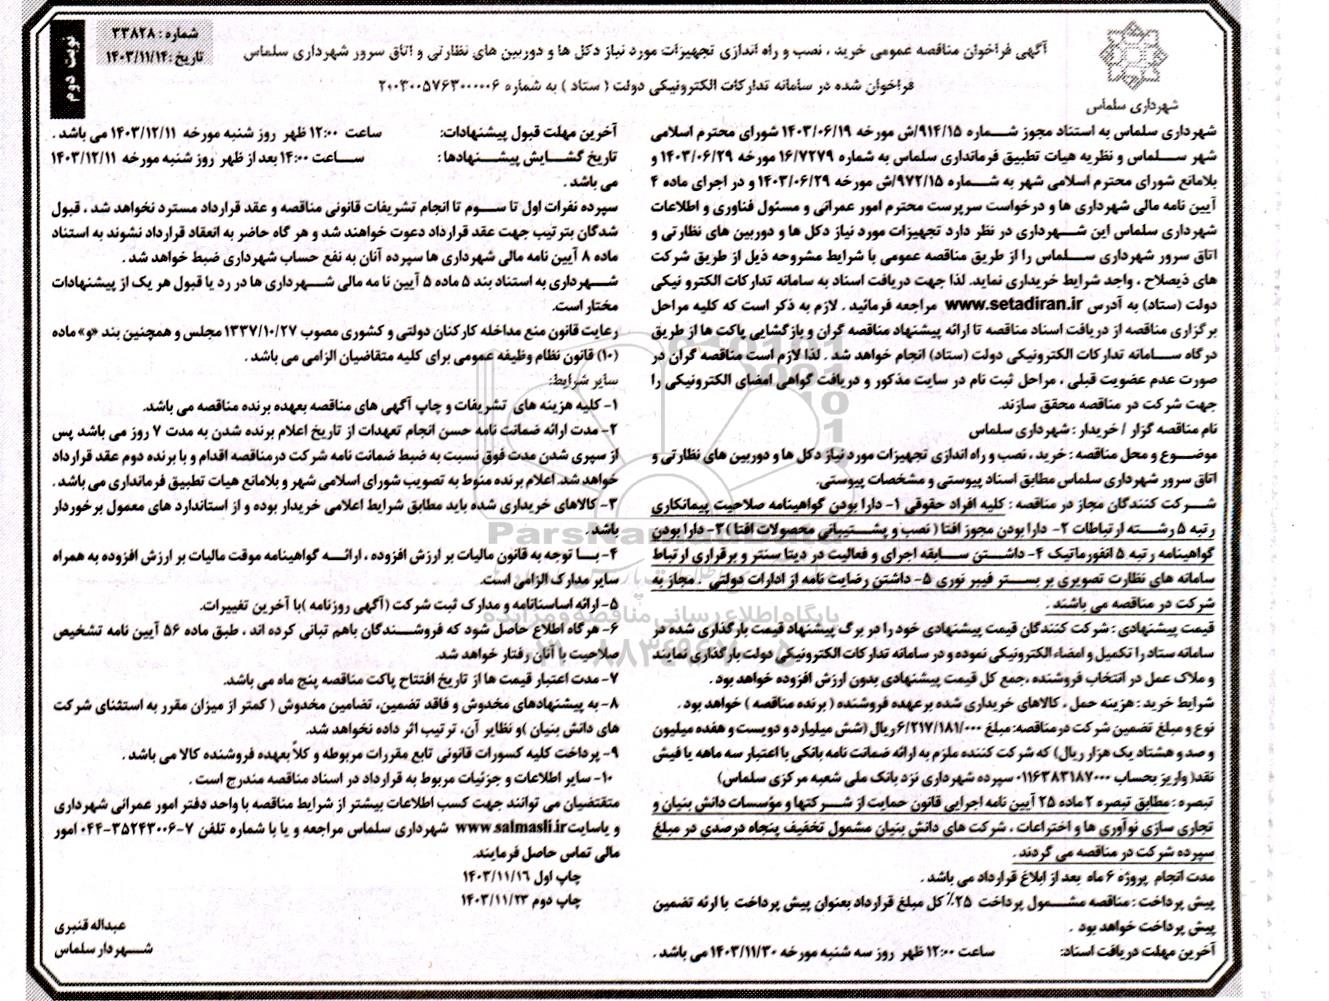 نوبت دوم
شماره : ۳۳۸۲۸
تاریخ : ۱۴۰۳/۱۱/۱۴
شهرداری سلماس
آگهی فراخوان مناقصه عمومی خرید ، نصب و راه اندازی تجهیزات مورد نیاز دکل ها و دوربین های نظارتی و اتاق سرور شهرداری سلماس
فراخوان شده در سامانه تدارکات الکترونیکی دولت ( ستاد ) به شماره ۲۰۰۳۰۰۵۷۶۳۰۰۰۰۰۶
شهرداری سلماس به استناد مجوز شماره ۹۱۴/۱۵/ش مورخه ۱۴۰۳/۰۶/۱۹ شورای محترم اسلامی
شهر سلماس و نظریه هیات تطبیق فرمانداری سلماس به شماره ۱۶/۷۲۷۹ مورخه ۱۴۰۳/۰۶/۲۹ و
بلامانع شورای محترم اسلامی شهر به شماره ۹۷۲/۱۵/ش مورخه ۱۴۰۳/۰۶/۲۹ و در اجرای ماده ۴
آیین نامه مالی شهرداری ها و درخواست سرپرست محترم امور عمرانی و مسئول فناوری و اطلاعات
شهرداری سلماس این شهرداری در نظر دارد تجهیزات مورد نیاز دکل ها و دوربین های نظارتی و
اتاق سرور شهرداری سلماس را از طریق مناقصه عمومی با شرایط مشروحه ذیل از طریق شرکت
های ذیصلاح ، واجد شرایط خریداری نماید. لذا جهت دریافت اسناد به سامانه تدارکات الکترو نیکی
دولت (ستاد) به آدرس www.setadiran.ir مراجعه فرمائید . لازم به ذکر است که کلیه مراحل
برگزاری مناقصه از دریافت اسناد مناقصه تا ارائه پیشنهاد مناقصه گران و بازگشایی پاکت ها از طریق
درگاه سامانه تدارکات الکترونیکی دولت (ستاد) انجام خواهد شد . لذا لازم است مناقصه گران در
صورت عدم عضویت قبلی ، مراحل ثبت نام در سایت مذکور و دریافت گواهی امضای الکترونیکی را
جهت شرکت در مناقصه محقق سازند.
نام مناقصه گزار / خریدار : شهرداری سلماس
موضوع و محل مناقصه : خرید ، نصب و راه اندازی تجهیزات مورد نیاز دکل ها و دوربین های نظارتی و
اتاق سرور شهرداری سلماس مطابق اسناد پیوستی و مشخصات پیوستی.
شرکت کنندگان مجاز در مناقصه : کلیه افراد حقوقی ۱- دارا بودن گواهینامه صلاحیت پیمانکاری
رتبه ۵ رشته ارتباطات ۲- دارا بودن مجوز افتا ( نصب و پشتیبانی محصولات افتا ) ۳- دارا بودن
گواهینامه رتبه ۵ انفورماتیک ۴- داشتن سابقه اجرای و فعالیت در دیتا سنتر و برقراری ارتباط
سامانه های نظارت تصویری بر بستر فیبر نوری ۵- داشتن رضایت نامه از ادارات دولتی . مجاز به
شرکت در مناقصه می باشند .
قیمت پیشنهادی : شرکت کنندگان قیمت پیشنهادی خود را در برگ پیشنهاد قیمت بارگذاری شده در
سامانه ستاد را تکمیل و امضاء الکترونیکی نموده و در سامانه تدارکات الکترونیکی دولت بارگذاری نمایند
و ملاک عمل در انتخاب فروشنده ،جمع کل قیمت پیشنهادی بدون ارزش افزوده خواهد بود .
شرایط خرید : هزینه حمل ، کالاهای خریداری شده برعهده فروشنده ( برنده مناقصه ) خواهد بود .
نوع و مبلغ تضمین شرکت در مناقصه: مبلغ ۶/۲۱۷/۱۸۱/۰۰۰ ریال (شش میلیارد و دویست و هفده میلیون
و صد و هشتاد یک هزار ریال) که شرکت کننده ملزم به ارائه ضمانت نامه بانکی با اعتبار سه ماهه یا فیش
نقد( واریز بحساب ۰۱۱۶۳۸۳۱۸۷۰۰۰ سپرده شهرداری نزد بانک ملی شعبه مرکزی سلماس)
تبصره : مطابق تبصره ۲ ماده ۲۵ آیین نامه اجرایی قانون حمایت از شرکتها و مؤسسات دانش بنیان و
تجاری سازی نوآوری ها و اختراعات ، شرکت های دانش بنیان مشمول تخفیف پنجاه درصدی در مبلغ
سپرده شرکت در مناقصه می گردند .
مدت انجام پروژه ۶ ماه بعد از ابلاغ قرارداد می باشد .
پیش پرداخت : مناقصه مشمول پرداخت ۲۵٪ کل مبلغ قرارداد بعنوان پیش پرداخت با ارئه تضمین
پیش پرداخت خواهد بود .
آخرین مهلت دریافت اسناد: ساعت ۱۲:۰۰ ظهر روز سه شنبه مورخه ۱۴۰۳/۱۱/۳۰ می باشد .
آخرین مهلت قبول پیشنهادات: ساعت ۱۲:۰۰ ظهر روز شنبه مورخه ۱۴۰۳/۱۲/۱۱ می باشد .
تاریخ گشایش پیشنهادها : ساعت ۱۴:۰۰ بعد از ظهر روز شنبه مورخه ۱۴۰۳/۱۲/۱۱
می باشد .
سپرده نفرات اول تا سوم تا انجام تشریفات قانونی مناقصه و عقد قرارداد مسترد نخواهد شد ، قبول
شدگان بترتیب جهت عقد قرارداد دعوت خواهند شد و هر گاه حاضر به انعقاد قرارداد نشوند به استناد
ماده ۸ آیین نامه مالی شهرداری ها سپرده آنان به نفع حساب شهرداری ضبط خواهد شد .
شهرداری به استناد بند ۵ ماده ۵ آیین نا مه مالی شهرداری ها در رد یا قبول هر یک از پیشنهادات
مختار است.
رعایت قانون منع مداخله کارکنان دولتی و کشوری مصوب ۱۳۳۷/۱۰/۲۷ مجلس و همچنین بند «و» ماده
(۱۰) قانون نظام وظیفه عمومی برای کلیه متقاضیان الزامی می باشد .
سایر شرایط:
۱- کلیه هزینه های تشریفات و چاپ آگهی های مناقصه بعهده برنده مناقصه می باشد.
۲- مدت ارائه ضمانت نامه حسن انجام تعهدات از تاریخ اعلام برنده شدن به مدت ۷ روز می باشد پس
از سپری شدن مدت فوق نسبت به ضبط ضمانت نامه شرکت درمناقصه اقدام و با برنده دوم عقد قرارداد
خواهد شد. اعلام برنده منوط به تصویب شورای اسلامی شهر و بلامانع هیات تطبیق فرمانداری می باشد .
۳- کالاهای خریداری شده باید مطابق شرایط اعلامی خریدار بوده و از استاندارد های معمول برخوردار
باشد.
۴- با توجه به قانون مالیات بر ارزش افزوده ، ارائه گواهینامه موقت مالیات بر ارزش افزوده به همراه
سایر مدارک الزامی است.
۵- ارائه اساسنامه و مدارک ثبت شرکت (آگهی روزنامه )با آخرین تغییرات.
۶- هرگاه اطلاع حاصل شود که فروشندگان باهم تبانی کرده اند ، طبق ماده ۵۶ آیین نامه تشخیص
صلاحیت با آنان رفتار خواهد شد.
۷- مدت اعتبار قیمت ها از تاریخ افتتاح پاکت مناقصه پنج ماه می باشد.
۸- به پیشنهادهای مخدوش و فاقد تضمین، تضامین مخدوش ( کمتر از میزان مقرر به استثنای شرکت
های دانش بنیان )و نظایر آن، ترتیب اثر داده نخواهد شد.
۹- پرداخت کلیه کسورات قانونی تابع مقررات مربوطه و کلاً بعهده فروشنده کالا می باشد .
۱۰- سایر اطلاعات و جزئیات مربوط به قرارداد در اسناد مناقصه مندرج است .
متقتضیان می توانند جهت کسب اطلاعات بیشتر از شرایط مناقصه با واحد دفتر امور عمرانی شهرداری
و یاسایت www.salmasli.ir شهرداری سلماس مراجعه و یا با شماره تلفن ۷-۳۵۲۴۳۰۰۶-۰۴۴ امور
مالی تماس حاصل فرمایند.
چاپ اول ۱۴۰۳/۱۱/۱۶
چاپ دوم ۱۴۰۳/۱۱/۲۳
عبداله قنبری
شهردار سلماس
ParsNamadData
پایگاه اطلاع رسانی مناقصه و مزایده